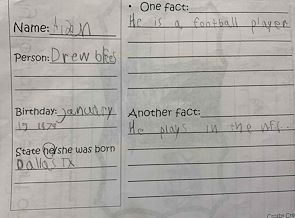 Name:
• One fact:
He is a football player
Person: Drew
Birthday: january
Another fact:
He plays in the nfl..
State he/she was born
Dallas TX